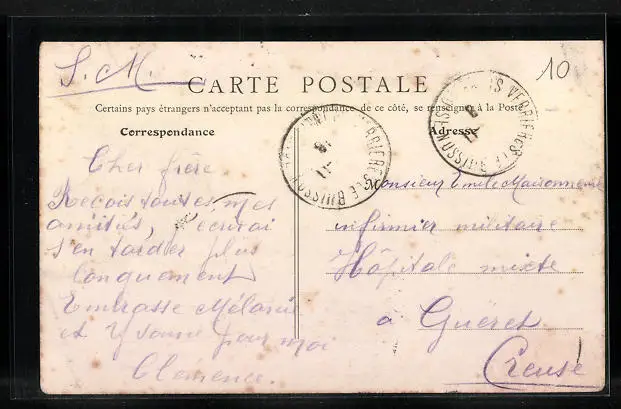 S. M.
10
CARTE POSTALE
Certains pays étrangers n'acceptent pas la correspondance de ce côté, se renseigner à la Poste
Correspondance
Adresse
VERRIERES LE BUISSON
VERRIERES LE BUISSON
Cher frère
Reçois toutes mes
amitiés, j'écrirai
s'en tarder plus
longuement
Embrasse Mélanie
et Yvonne pour moi
Clemence.
Monsieur Emile Maisonneuve
infirmier militaire
Hôpitale mixte
a Guéret
Creuse